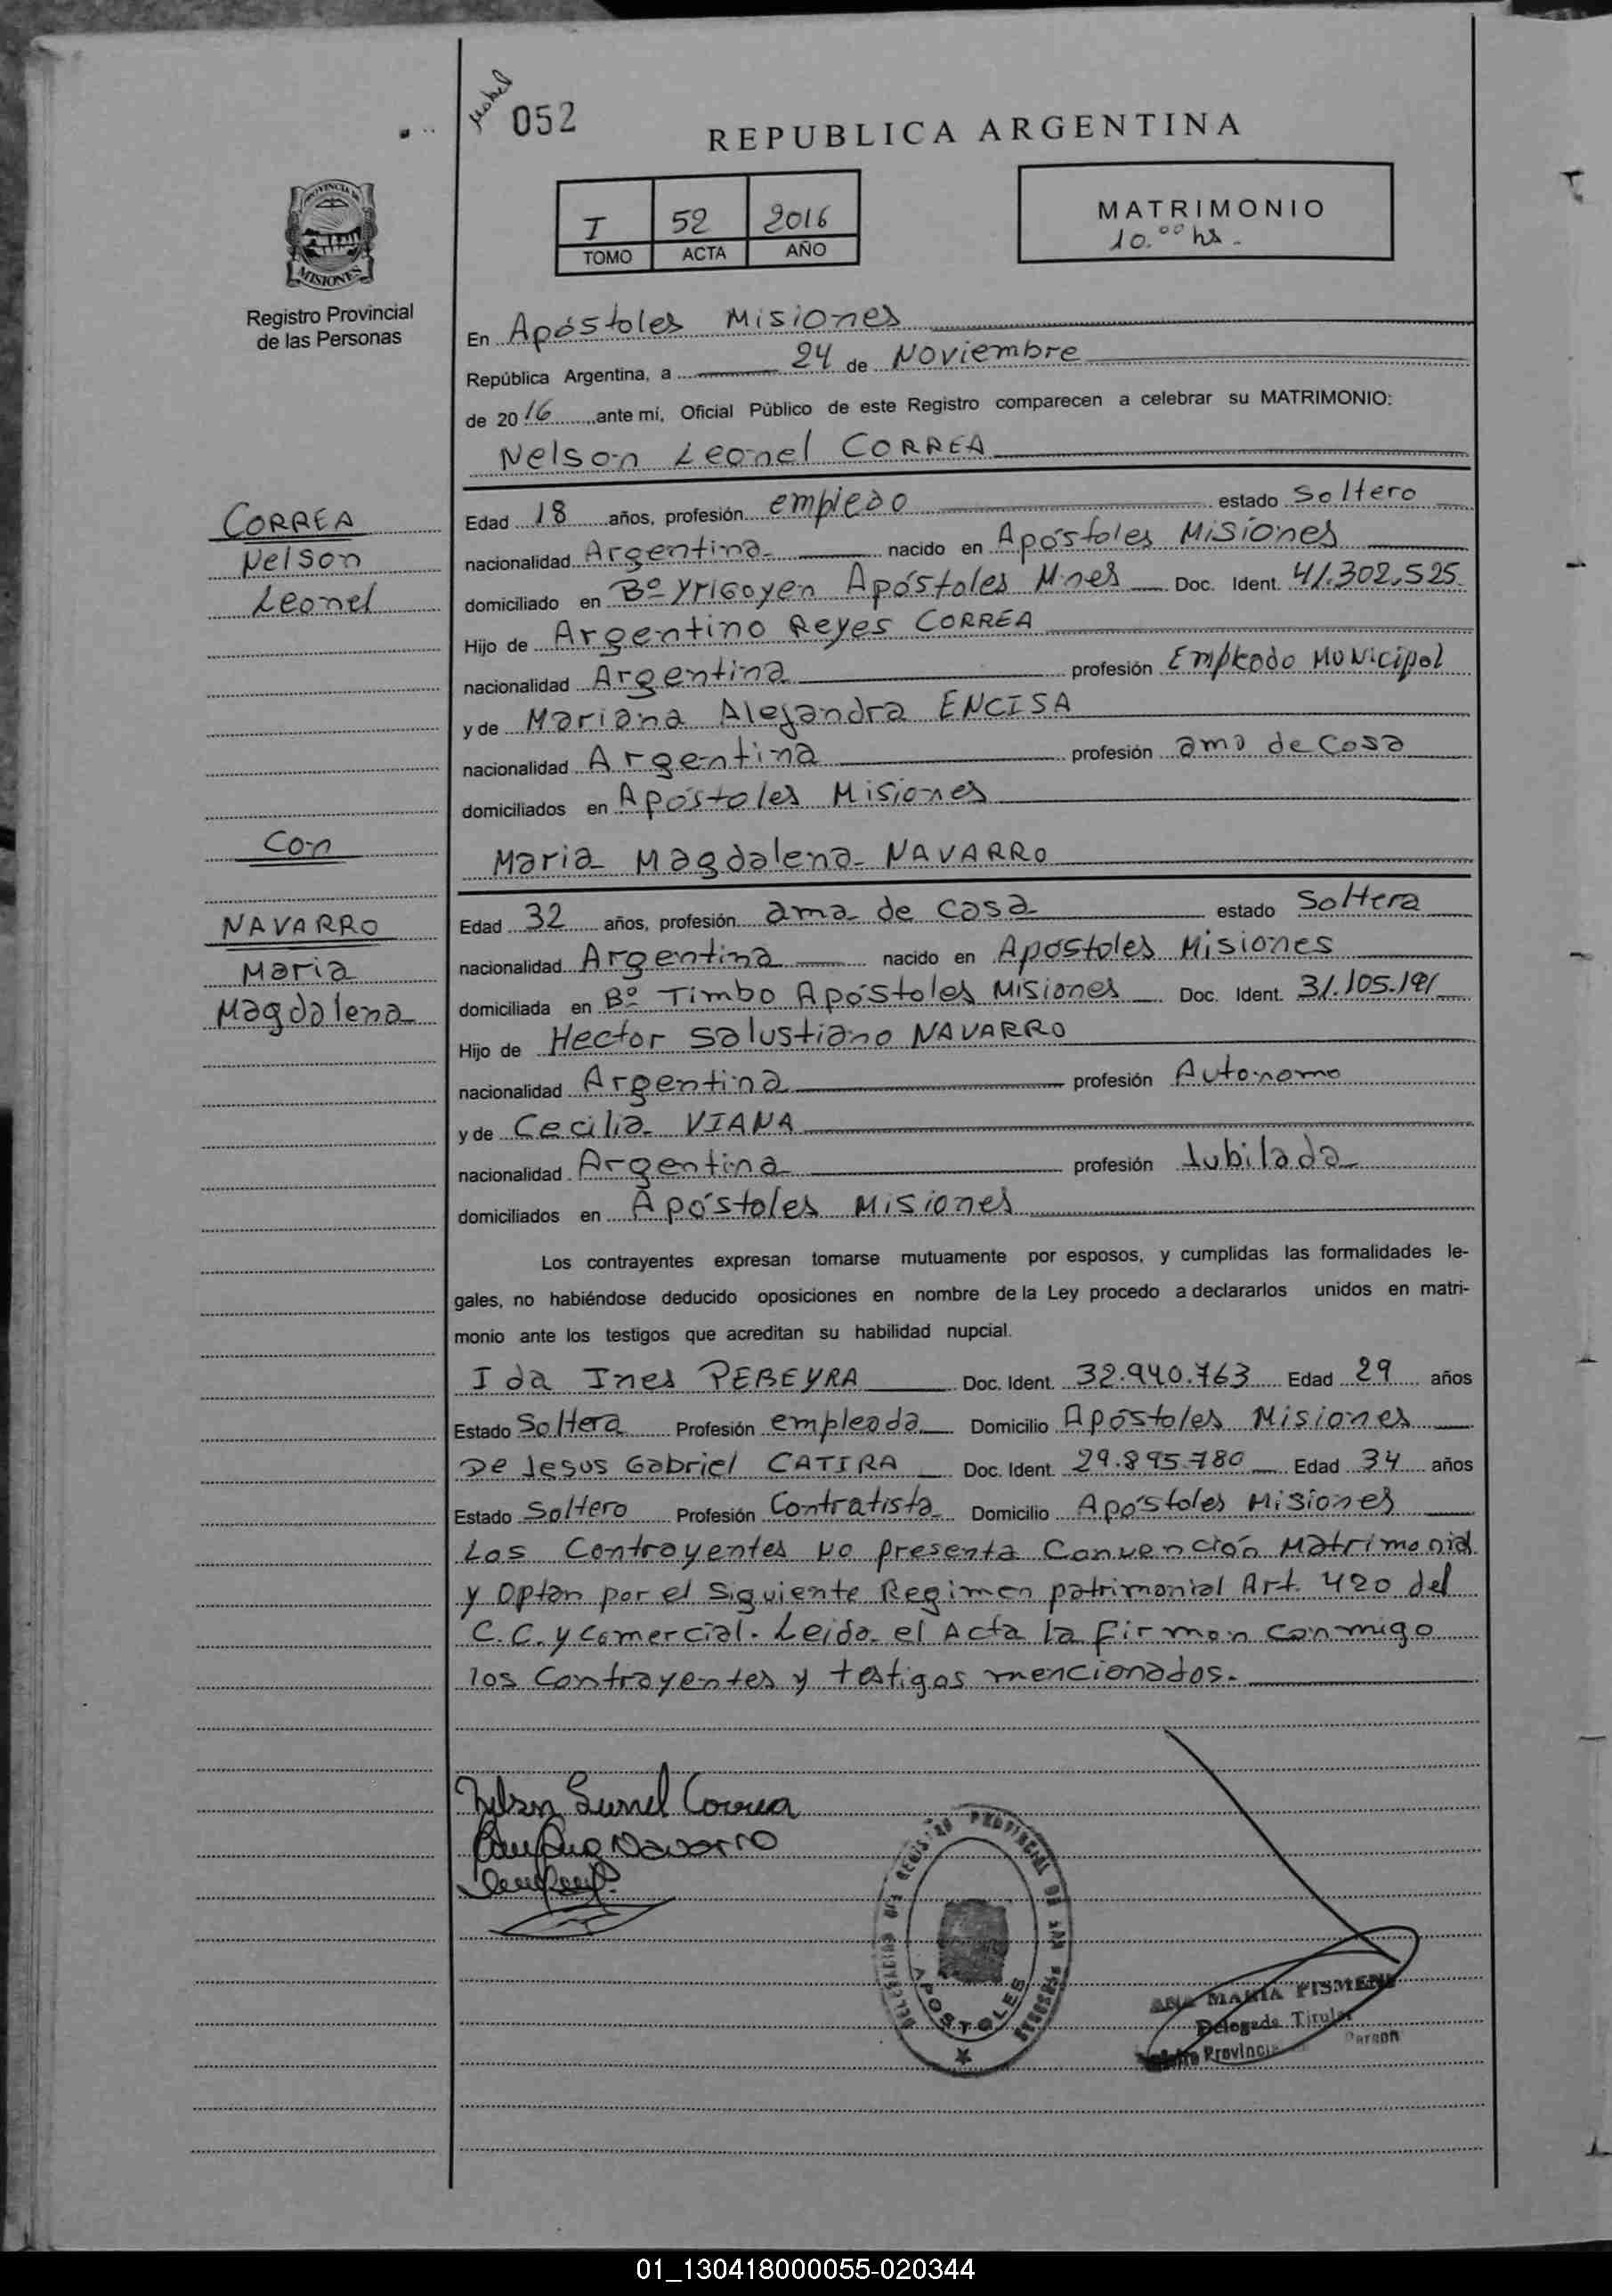 Mabel
052
REPUBLICA ARGENTINA
I 52 2016
TOMO ACTA AÑO
MATRIMONIO
10.⁰⁰ hs.
PROVINCIA DE
MISIONES
Registro Provincial
de las Personas
En Apóstoles Misiones
República Argentina, a 24 de Noviembre
de 2016 ante mí, Oficial Público de este Registro comparecen a celebrar su MATRIMONIO:
Nelson Leonel CORREA
CORREA
Nelson
Leonel
Con
NAVARRO
Maria
Magdalena
Edad 18 años, profesión empledo estado Soltero
nacionalidad Argentina nacido en Apóstoles Misiones
domiciliado en Bº Yrigoyen Apóstoles Mnes Doc. Ident. 41.302.525
Hijo de Argentino Reyes CORREA
nacionalidad Argentina profesión Empleado Municipal
y de Mariana Alejandra ENCISA
nacionalidad Argentina profesión ama de Casa
domiciliados en Apóstoles Misiones
Maria Magdalena NAVARRO
Edad 32 años, profesión ama de casa estado Soltera
nacionalidad Argentina nacido en Apóstoles Misiones
domiciliada en Bº Timbo Apóstoles Misiones Doc. Ident. 31.105.191
Hijo de Hector Salustiano NAVARRO
nacionalidad Argentina profesión Autonomo
y de Cecilia VIANA
nacionalidad Argentina profesión Jubilada
domiciliados en Apóstoles Misiones
Los contrayentes expresan tomarse mutuamente por esposos, y cumplidas las formalidades le-
gales, no habiéndose deducido oposiciones en nombre de la Ley procedo a declararlos unidos en matri-
monio ante los testigos que acreditan su habilidad nupcial.
Ida Ines PEREYRA Doc. Ident. 32.940.763 Edad 29 años
Estado Soltera Profesión empleada Domicilio Apóstoles Misiones
De Jesus Gabriel CATIRA Doc. Ident. 29.895.780 Edad 34 años
Estado Soltero Profesión Contratista Domicilio Apóstoles Misiones
Los Contrayentes No presenta Convención Matrimonial
y Optan por el Siguiente Regimen patrimonial Art. 420 del
C.C. y Comercial. Leida el Acta la firman conmigo
los Contrayentes y testigos mencionados.
Nelson Leonel Correa
Navarro
DELEGACION DEL REGISTRO PROVINCIAL DE LAS PERSONAS
APOSTOLES
ANA MARIA PISMENI
Delegada Titular
Provincia Person
01_130418000055-020344